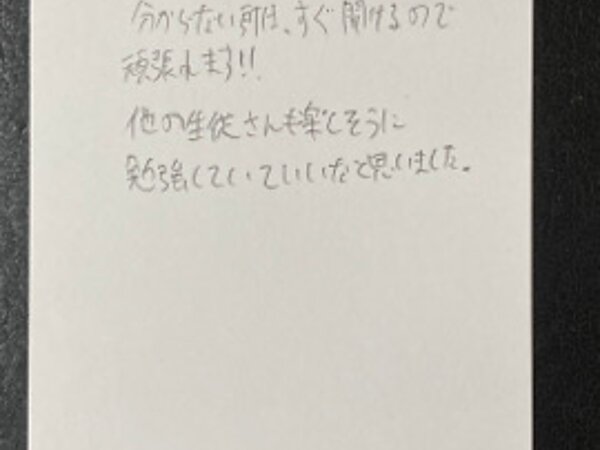 分からない所は、すぐ聞けるので
頑張れます!!
他の生徒さんも楽しそうに
勉強していていいなと思いました。